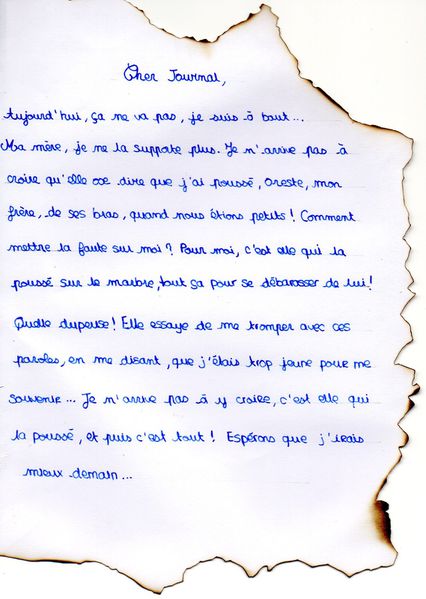 Cher Journal,
Aujourd'hui, ça ne va pas, je suis à bout...
Ma mère, je ne la supporte plus. Je n'arrive pas à
croire qu'elle ose dire que j'ai poussé, Oreste, mon
frère, de ses bras, quand nous étions petits ! Comment
mettre la faute sur moi ? Pour moi, c'est elle qui la
poussé sur le marbre, tout ça pour se débarasser de lui !
Quelle dupeuse ! Elle essaye de me tromper avec ces
paroles, en me disant, que j'étais trop jeune pour me
souvenir... Je n'arrive pas à y croire, c'est elle qui
la poussé, et puis c'est tout ! Espérons que j'irais
mieux demain...